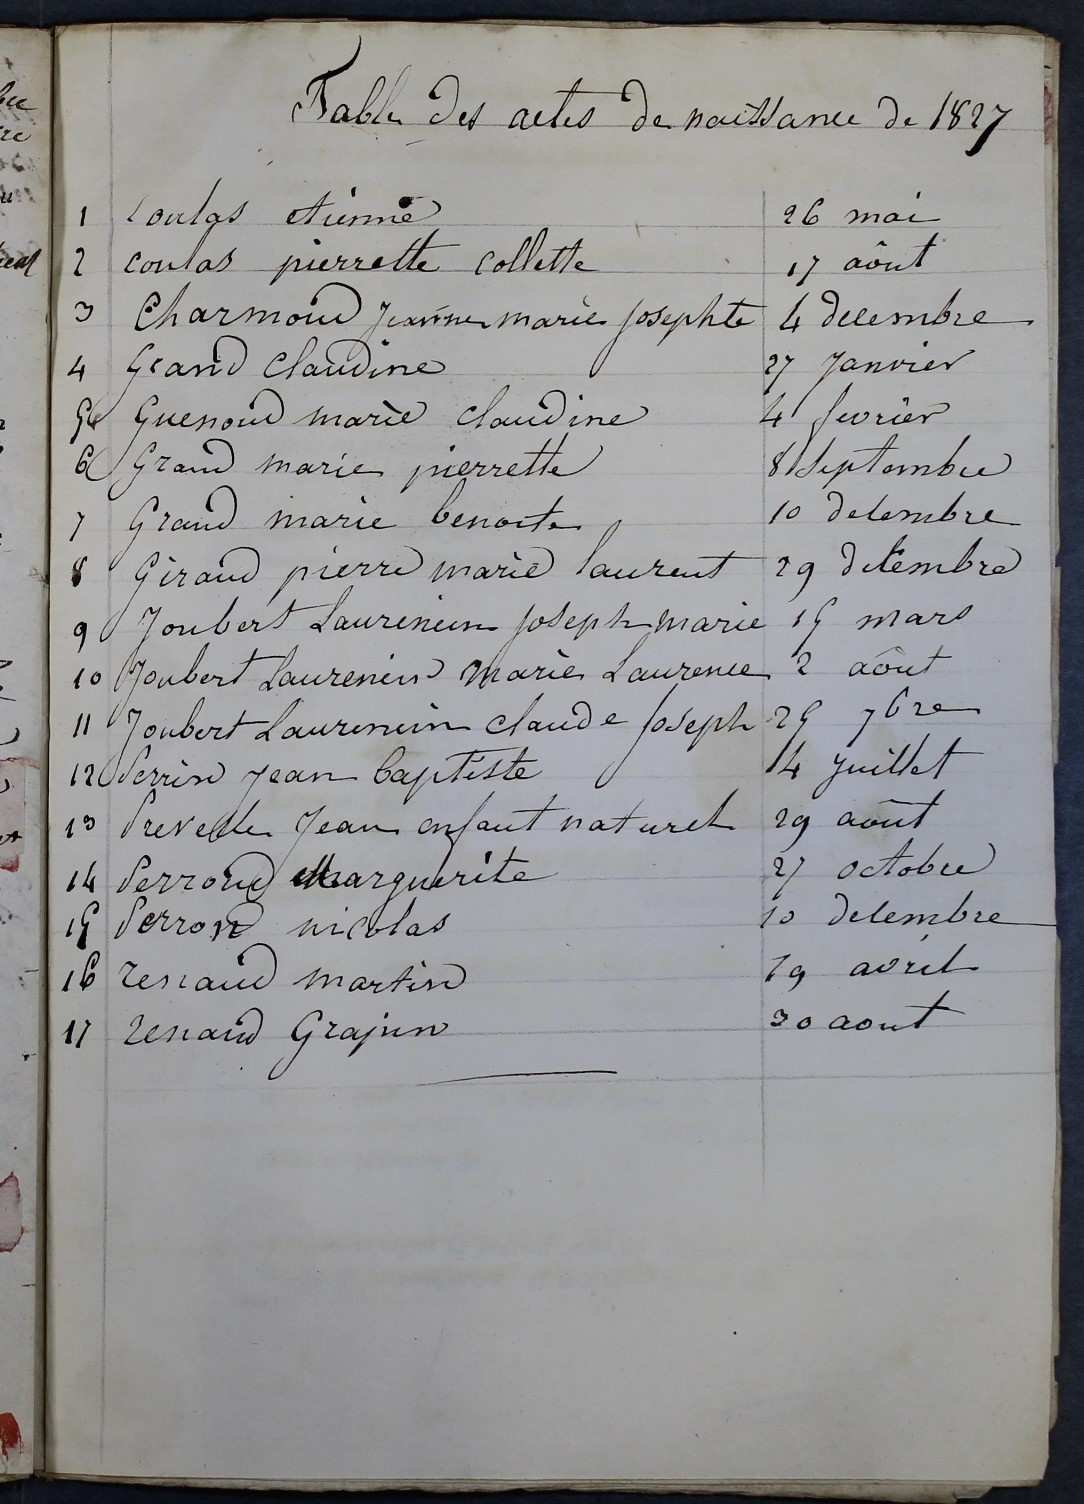 Table des actes de naissance de 1827
1 Coulas etienne 26 mai
2 coulas pierrette collette 17 août
3 Charmond Jeanne marie josephte 4 decembre
4 Grand claudine 27 janvier
5 Guenoud marie claudine 4 fevrier
6 Grand marie pierrette 8 septembre
7 Grand marie benoite 10 decembre
8 Giraud pierre marie laurent 29 decembre
9 Joubert Laurencin joseph marie 15 mars
10 Joubert Laurencin marie Laurence 2 août
11 Joubert Laurencin claude joseph 25 7bre
12 Perrin jean baptiste 14 juillet
13 Jean enfant naturel 29 août
14 Perrond Marguerite 27 octobre
15 Perrond nicolas 10 decembre
16 renaud martin 19 avril
17 renaud 30 aout